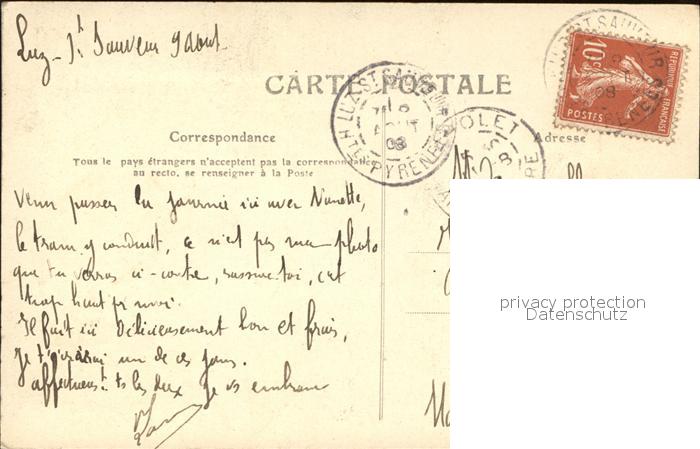 Luz-St Sauveur 9 aout
CARTE POSTALE
LUZ-ST-SAUVEUR
AOUT
08
HTES PYRENEES
10c
REPUBLIQUE FRANCAISE
POSTES
CHOLET
Correspondance
Adresse
Tous le pays étrangers n'acceptent pas la correspondance
au recto, se renseigner à la Poste
Venu passer la journée ici avec Nanette,
le tram y conduit, ce n'est pas ma photo
que tu verras ci-contre, rassure toi, c'est
trop haut pr moi.
Il fait ici délicieusement bon et frais,
Je t'écrirai un de ces jours.
affectueust ts les deux je vs embrasse
privacy protection
Datenschutz